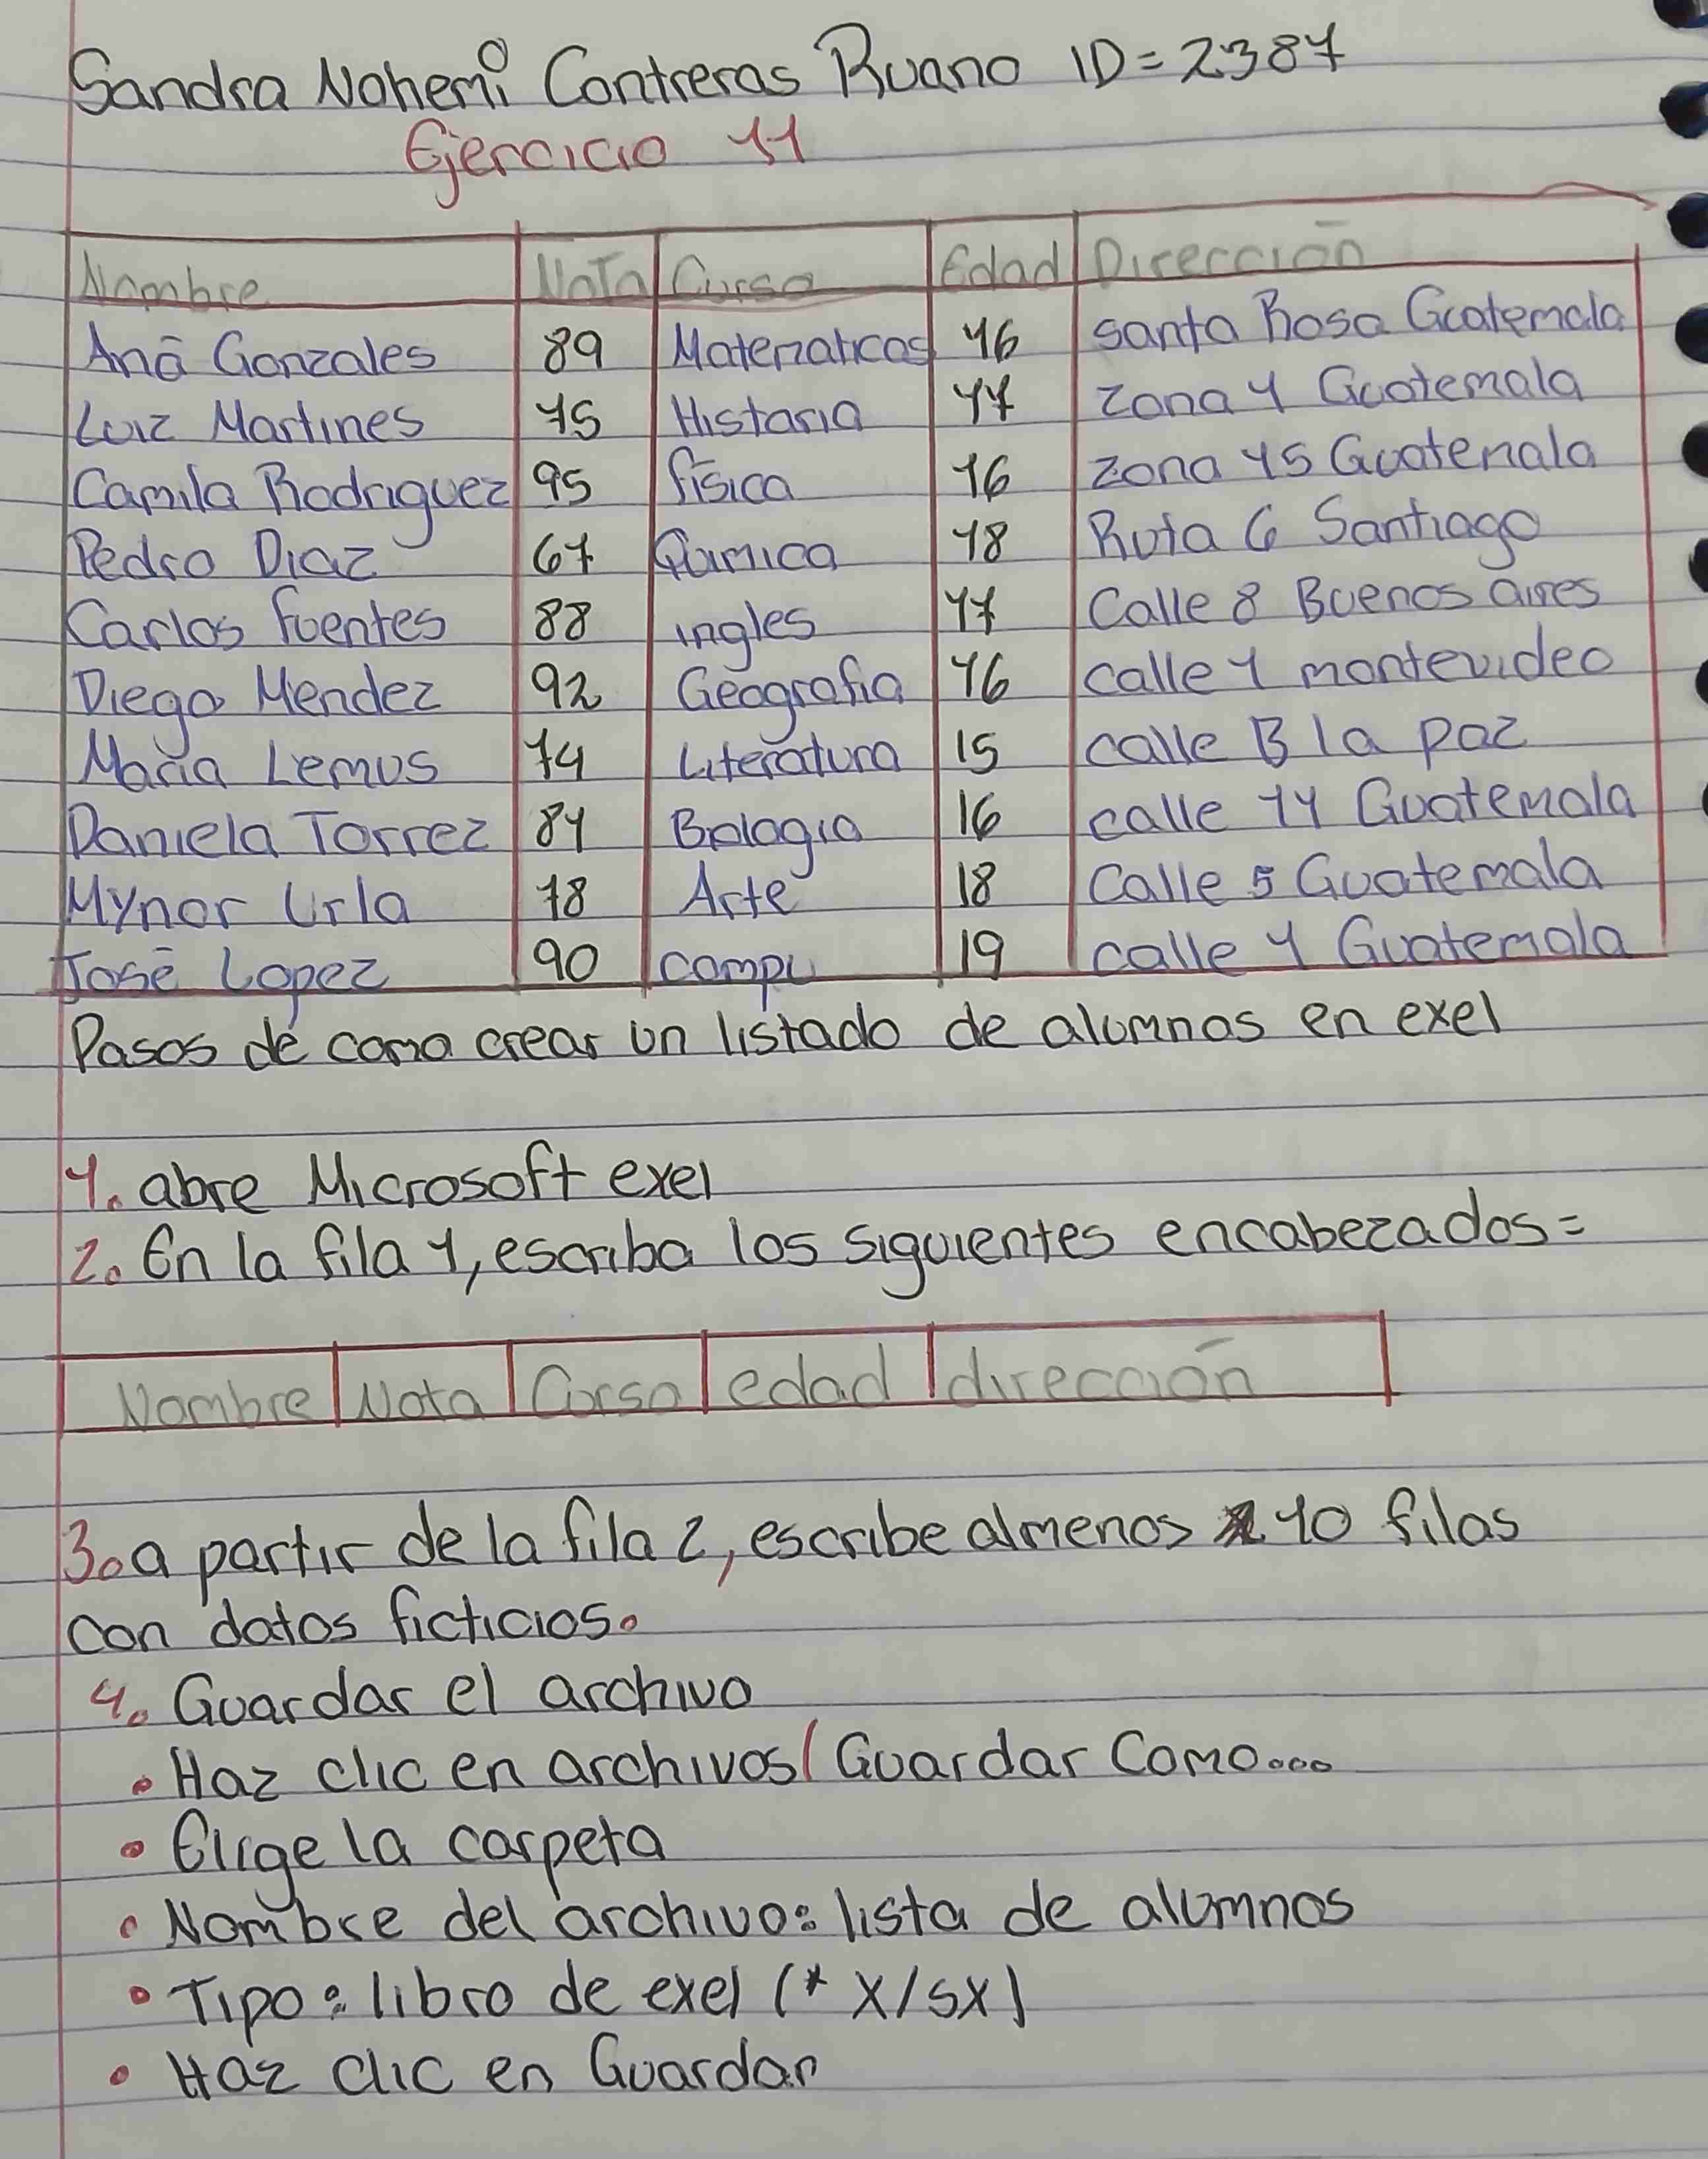 Sandra Nohemi Contreras Ruano ID=2387
Ejercicio 11
Nombre Nota Curso Edad Dirección
Ana Gonzales 89 Matematicas 16 Santa Rosa Guatemala
Luiz Martines 75 Historia 17 Zona 1 Guatemala
Camila Rodriguez 95 física 16 Zona 15 Guatemala
Pedro Diaz 67 Quimica 18 Ruta 6 Santiago
Carlos fuentes 88 ingles 17 Calle 8 Buenos aires
Diego Mendez 92 Geografia 16 calle 1 montevideo
Maria Lemus 74 Literatura 15 calle B la paz
Daniela Torrez 81 Biologia 16 calle 11 Guatemala
Mynor Urla 78 Arte 18 Calle 5 Guatemala
José Lopez 90 compu 19 calle 1 Guatemala
Pasos de como crear un listado de alumnos en exel
1. abre Microsoft exel
2. En la fila 1, escriba los siguientes encabezados=
Nombre Nota Curso edad dirección
3. a partir de la fila 2, escribe almenos 10 filas
con datos ficticios.
4. Guardar el archivo
• Haz clic en archivos/Guardar Como....
• Elige la carpeta
• Nombre del archivo: lista de alumnos
• Tipo: libro de exel (* x/sx)
• Haz clic en Guardar